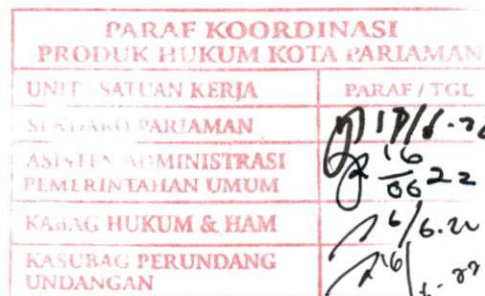 PARAF KOORDINASI
PRODUK HUKUM KOTA PARIAMAN
UNIT SATUAN KERJA PARAF / TGL
PARIAMAN
ASISTEN ADMINISTRASI 16
PEMERINTAHAN UMUM 06 22
KABAG HUKUM & HAM 6/6.22
KASUBAG PERUNDANG
UNDANGAN